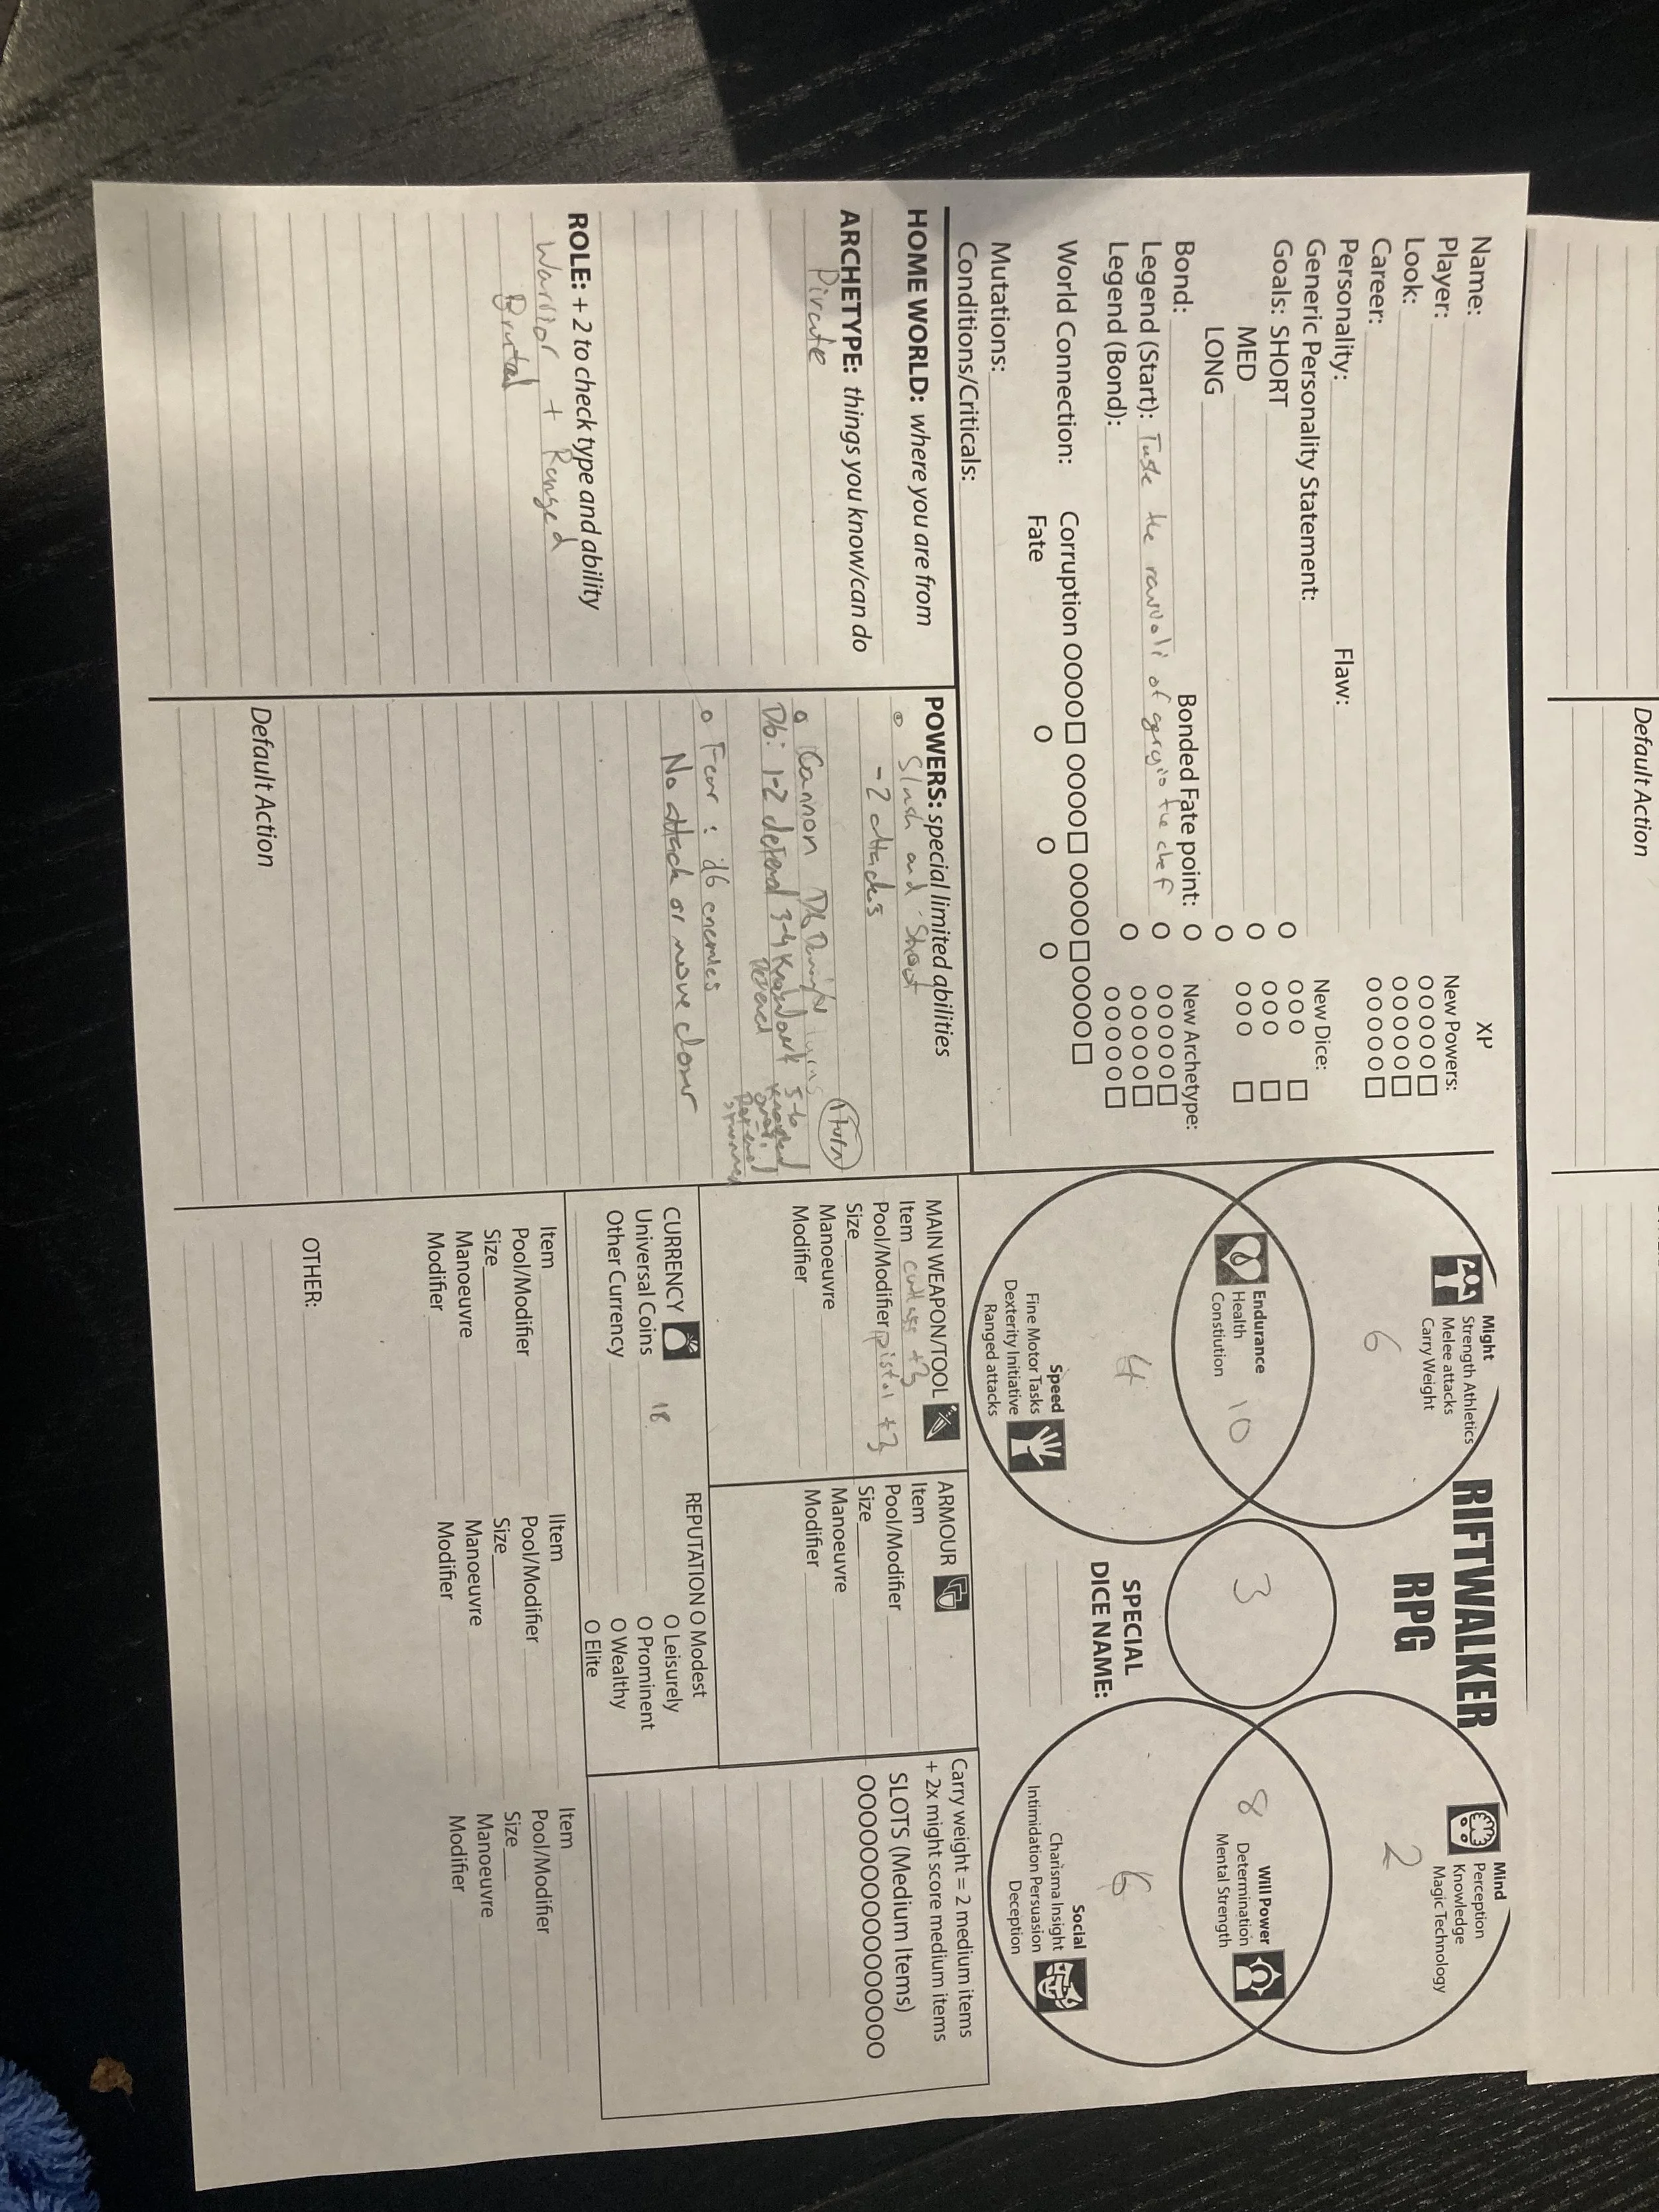 Default Action
Name:
Player:
Look:
Career:
Personality:
Flaw:
Generic Personality Statement:
Goals: SHORT
MED
LONG
Bond:
Bonded Fate point: O
Legend (Start): Taste the ravioli of the chef O
Legend (Bond): O
World Connection:
Corruption OOOO□ OOOO□ OOOO□ OOOO□
Fate O O O
Mutations:
Conditions/Criticals:
XP
New Powers:
OOOOO□
OOOOO□
OOOOO□
New Dice:
O OOO □
O OOO □
O OOO □
New Archetype:
OOOOO□
OOOOO□
OOOOO□
RIFTWALKER
RPG
Might
Strength Athletics
Melee attacks
Carry Weight
6
Endurance
Health
Constiution
10
4
Speed
Fine Motor Tasks
Dexterity Initiative
Ranged attacks
3
SPECIAL
DICE NAME:
Mind
Perception
Knowledge
Magic Technology
2
8
Will Power
Determination
Mental Strength
6
Social
Charisma Insight
Intimidation Persuasion
Deception
HOME WORLD: where you are from
ARCHETYPE: things you know/can do
Pirate
ROLE: + 2 to check type and ability
Warrior + Ranged
Brutal
POWERS: special limited abilities
Slash and Shoot
- 2 attacks
Cannon D6
1 turn
D6: 1-2 3-4 5-6
Fear: d6 enemies
No attack or move closer
Default Action
MAIN WEAPON/TOOL
Item cutlass +3
Pool/Modifier pistol +3
Size
Manoeuvre
Modifier
ARMOUR
Item
Pool/Modifier
Size
Manoeuvre
Modifier
Carry weight = 2 medium items
+ 2x might score medium items
SLOTS (Medium Items)
OOOOOOOOOOOOOOOOOO
CURRENCY
Universal Coins 18
Other Currency
REPUTATION O Modest
O Leisurely
O Prominent
O Wealthy
O Elite
Item
Pool/Modifier
Size
Manoeuvre
Modifier
IItem
Pool/Modifier
Size
Manoeuvre
Modifier
Item
Pool/Modifier
Size
Manoeuvre
Modifier
OTHER: